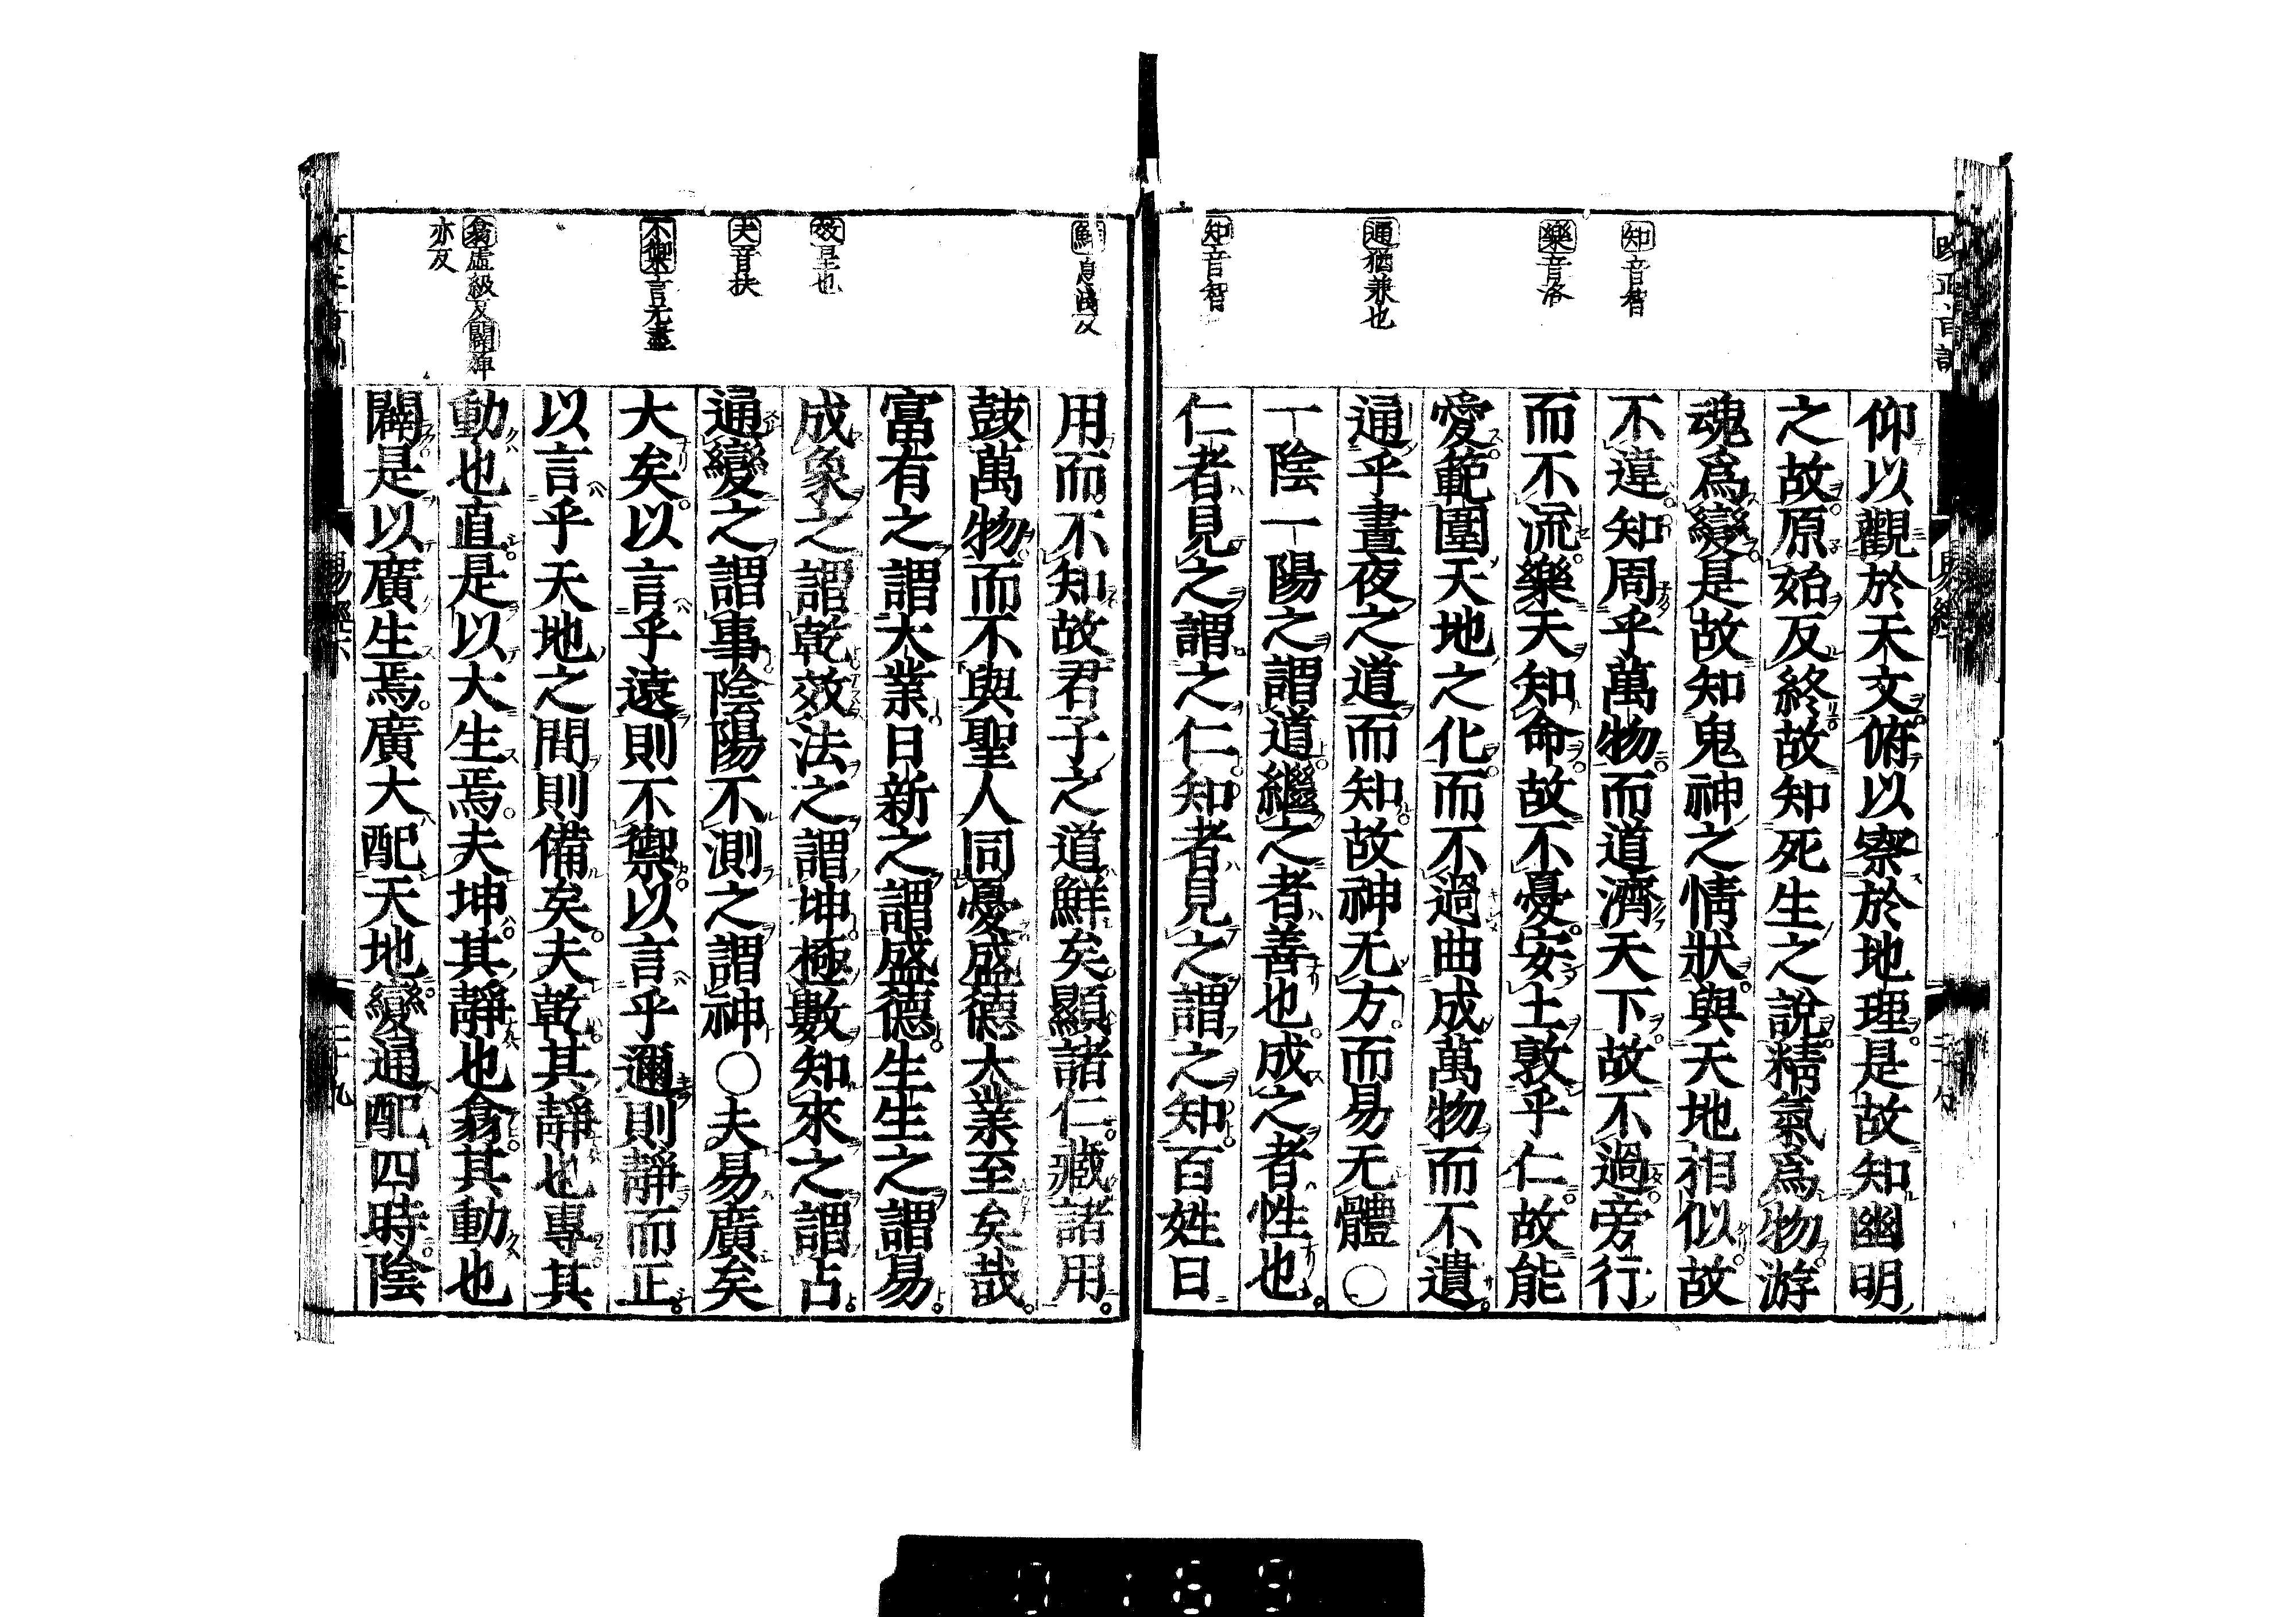 知音智
樂音洛
通猶兼也
知音智
仰以觀於天文俯以察於地理是故知幽明
之故原始反終故知死生之說精氣爲物游
魂爲變是故知鬼神之情狀與天地相似故
不違知周乎萬物而道濟天下故不過旁行
而不流樂天知命故不憂安土敦乎仁故能
愛範圍天地之化而不過曲成萬物而不遺
通乎晝夜之道而知故神无方而易无體〇
一陰一陽之謂道繼之者善也成之者性也
仁者見之謂之仁知者見之謂之知百姓日
鮮息淺反
效呈也
夫音扶
不禦言无盡
翕虛級反闢婢
亦反
用而不知故君子之道鮮矣顯諸仁藏諸用
鼓萬物而不與聖人同憂盛德大業至矣哉
富有之謂大業日新之謂盛德生生之謂易
成象之謂乾效法之謂坤極數知來之謂占
通變之謂事陰陽不測之謂神〇夫易廣矣
大矣以言乎遠則不禦以言乎邇則靜而正
以言乎天地之間則備矣夫乾其靜也專其
動也直是以大生焉夫坤其靜也翕其動也
闢是以廣生焉廣大配天地變通配四時陰
易經
二十九